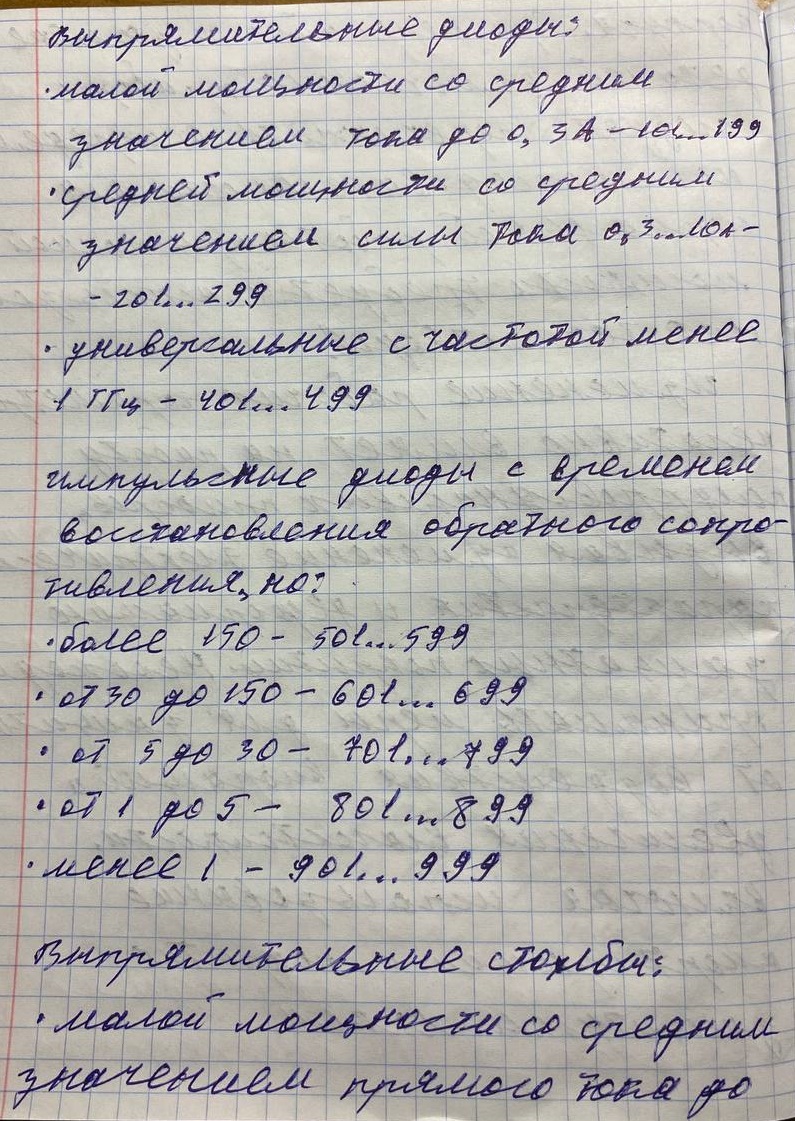 Выпрямительные диоды:
· малой мощности со средним
значением тока до 0,3А – 101...199
· средней мощности со средним
значением силы тока 0,3...10А –
– 201...299
· универсальные с частотой менее
1 ГГц – 401...499
импульсные диоды с временем
восстановления обратного сопро-
тивления, нс:
· более 150 – 501...599
· от 30 до 150 – 601...699
· от 5 до 30 – 701...799
· от 1 до 5 – 801...899
· менее 1 – 901...999
Выпрямительные столбы:
· малой мощности со средним
значением прямого тока до